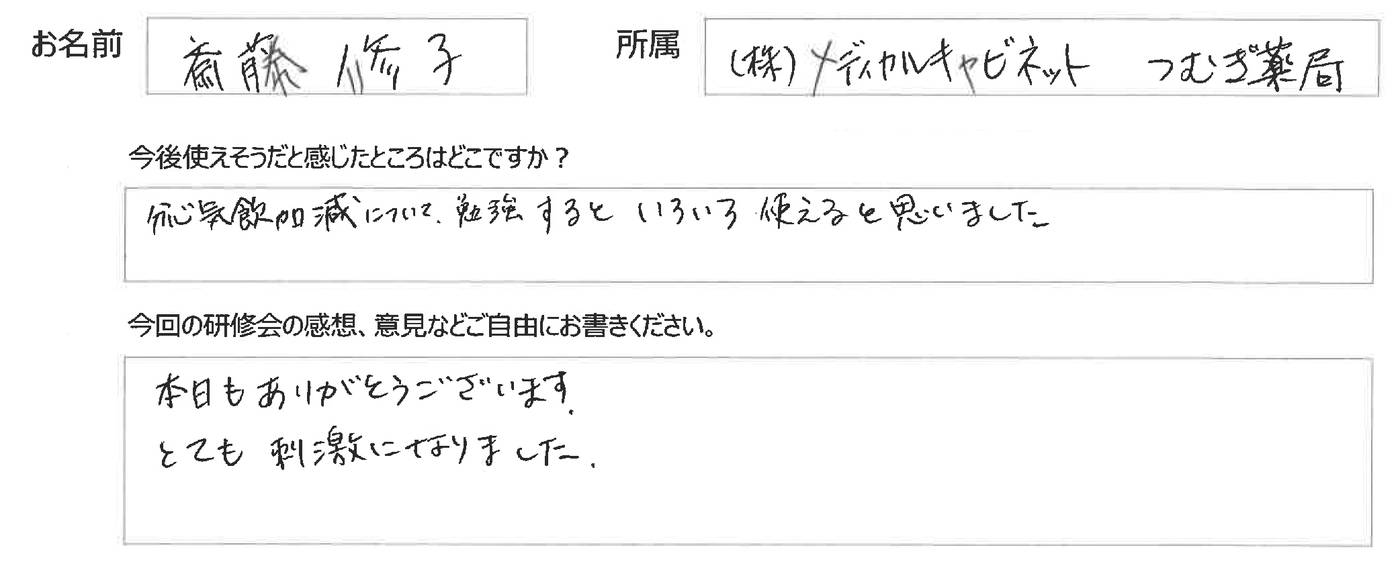 お名前 斎藤 修子 所属 (株)メディカルキャビネット つむぎ薬局
今後使えそうだと感じたところはどこですか?
分心気飲加減について、勉強するといろいろ使えると思いました
今回の研修会の感想、意見などご自由にお書きください。
本日もありがとうございます。
とても刺激になりました。